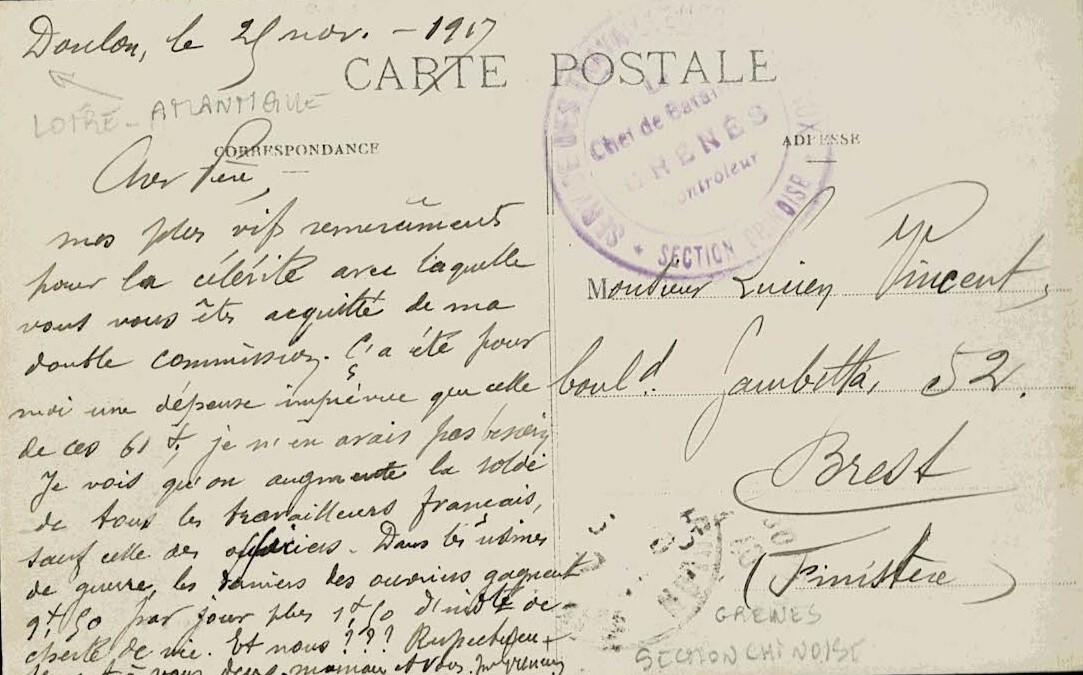 Doulon, le 25 nov. - 1917
CARTE POSTALE
LOIRE - ATLANTIQUE
CORRESPONDANCE
ADRESSE
SERVICE DES
Chef de Batai
GRENÉS
Contrôleur
* SECTION
Cher Père,
mes plus vifs remerciements
pour la célérité avec laquelle
vous vous êtes acquitté de ma
double commission. Ç'a été pour
moi une dépense imprévue que celle
de ces 61 f. je n'en avais pas besoin
Je vois qu'on augmente la solde
de tous les travailleurs français,
sauf celle des officiers. Dans les usines
de guerre, les derniers des ouvriers gagnent
9f 50 par jour plus 1f 50 d'indté de
cherté de vie. Et nous ??? Respectueu-
à vous deux, maman et vous.
Monsieur Lucien Vincent,
boul d. Gambetta, 52.
Brest
(Finistère)
GRENES
SECTION CHINOISE